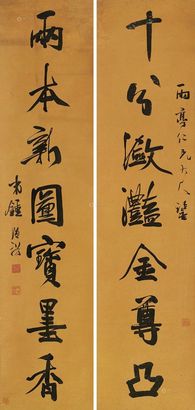 雨亭仁兄大人鑒
十分瀲灩金尊凸
兩本新圖寶墨香
弟鍾德祥